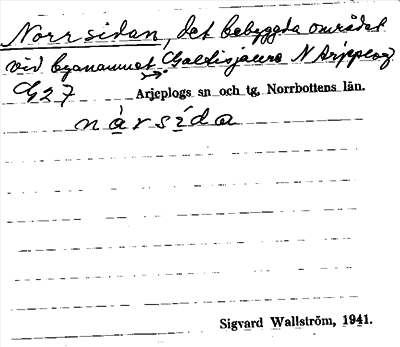 Norrsidan, det bebyggda området
vid byanamnet Galtisjaure N Arjeplog
G27 Arjeplogs sn och tg. Norrbottens län.
nàrsída
Sigvard Wallström, 1941.